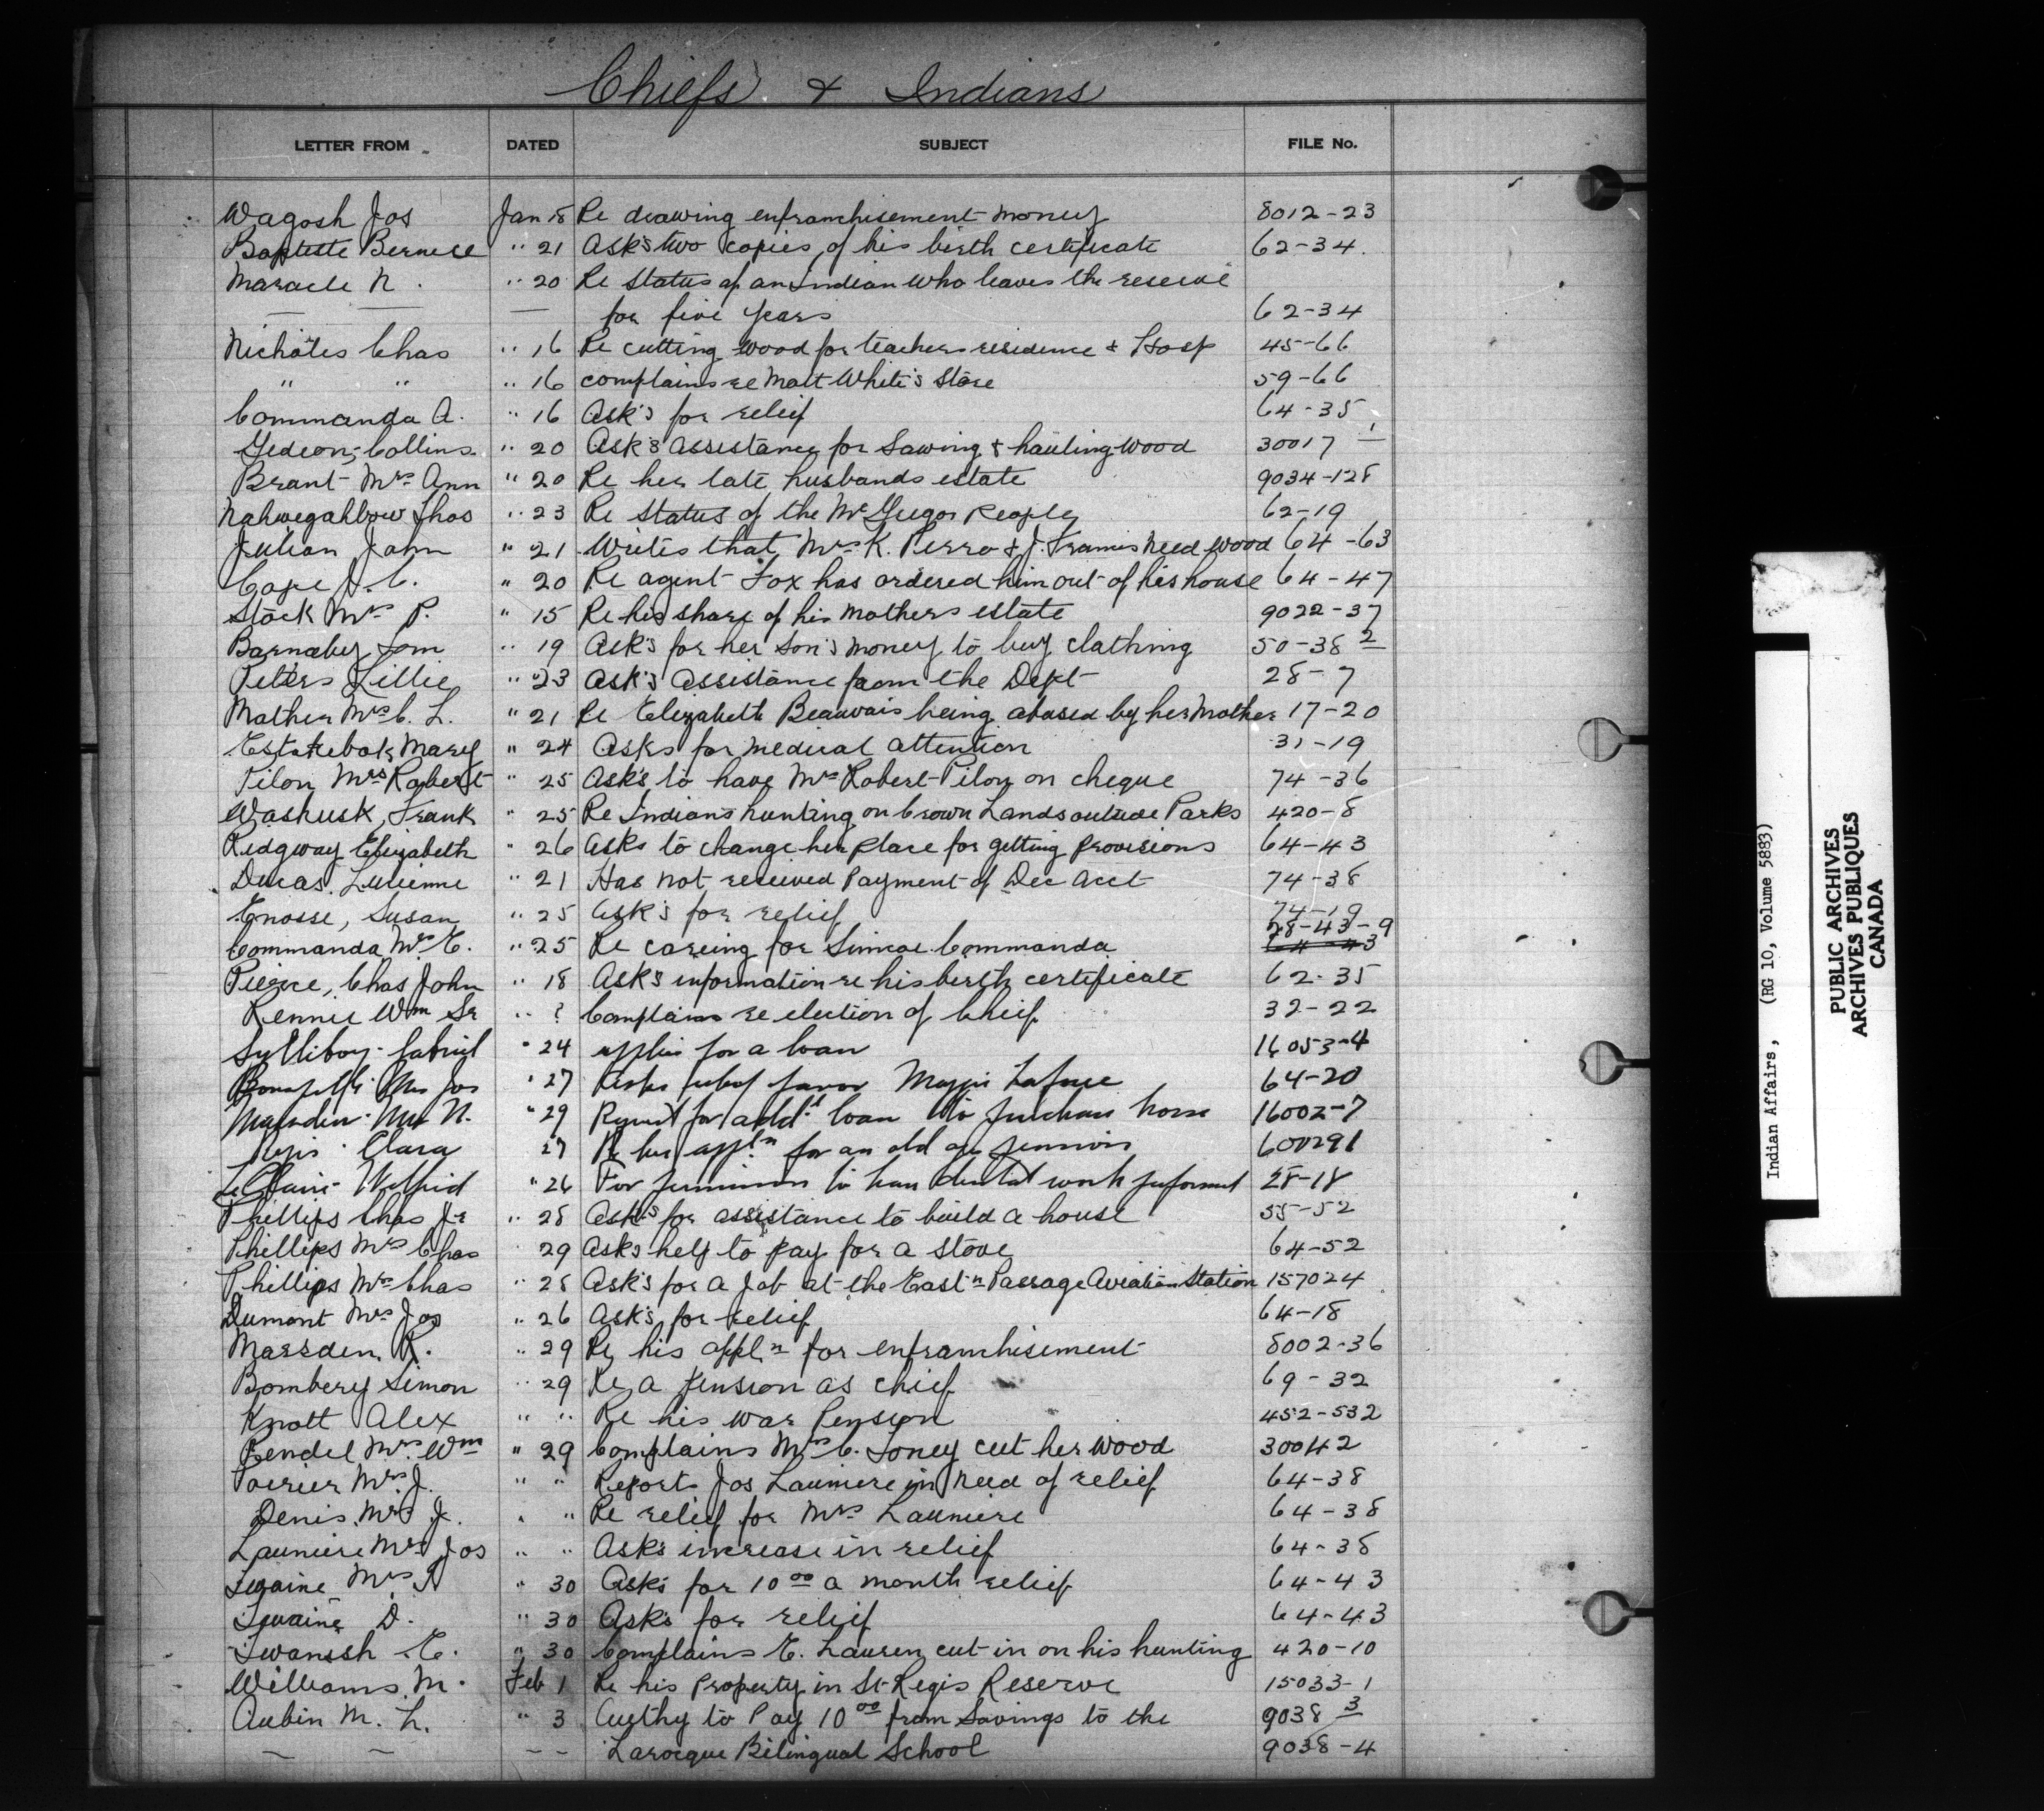 Chiefs & Indians
LETTER FROM DATED SUBJECT FILE No.
Wagosh Jos Jan 18 Re drawing enfranchisement money 8012-23
Baptiste Bernice " 21 Ask's two copies of his birth certificate 62-34
Maracle N. " 20 Re status of an Indian who leaves the reserve
— — — for five years 62-34
Nicholas Chas " 16 Re cutting wood for teachers residence & Hosp 45-66
" " " 16 complains re Matt White's Store 59-66
Commanda A. " 16 Ask's for relief 64-35
Gedeon, Collins " 20 Ask's assistance for Sawing & hauling wood 30017-1
Brant Mrs Ann " 20 Re her late husbands estate 9034-128
Nahwegahbow Thos " 23 Re status of the McGregor People 62-19
Julian John " 21 Writes that Mrs K. Pierro & J. Francis need wood 64-63
Cope J. C. " 20 Re agent Fox has ordered him out of his house 64-47
Stock Mrs P. " 15 Re his share of his mothers estate 9022-37
Barnaby Tom " 19 Ask's for her son's money to buy clothing 50-38 2
Peters Lillie " 23 Ask's assistance from the Dept 28-7
Mather Mrs C. L. " 21 Re Elizabeth Beauvais being abused by her Mother 17-20
Mary " 24 Asks for medical attention 31-19
Pilon Mrs Robert " 25 Ask's to have Mrs Robert Pilon on cheque 74-36
Waskusk, Frank " 25 Re Indians hunting on Crown Lands outside Parks 420-8
Ridgway Elizabeth " 26 Asks to change her place for getting provisions 64-43
Ducas. Lucienne " 21 Has not received Payment of Dec acct 74-38
Enosse, Susan " 25 Ask's for relief 74-19
Commanda Mrs E. " 25 Re careing for Simcoe Commanda 28-43-9 64-43
Pierce, Chas John " 18 Ask's information re his birth certificate 62-35
Rennie Wm Sr " ? Complains re election of Chief 32-22
Sylliboy Gabriel " 24 applies for a loan 16053-4
Mrs Jos " 27 Asks relief favor 64-20
Marsden Mrs N. " 29 Request for addl loan to purchase horse 16002-7
Clara 27 Re her appln for an old age pension 600291
LeClaire Wilfrid " 26 For permission to have dental work performed 28-18
Phillips Chas Jr " 28 Ask's for assistance to build a house 55-52
Phillips Mrs Chas " 29 Asks help to pay for a stove 64-52
Phillips Mrs Chas " 28 Ask's for a Job at the Eastn Passage Aviation Station 157024
Dumont Mrs Jos " 26 Ask's for relief 64-18
Marsden R. " 29 Re his appln for enfranchisement 8002-36
Bombery Simon " 29 Re a pension as chief 69-32
Knott Alex " " Re his war Pension 452-532
Rendel Mrs Wm " 29 Complains Mrs C. Loney cut her wood 30042
Poirier Mrs J. " " Reports Jos Launiere in need of relief 64-38
Denis Mrs J. " " Re relief for Mrs Launiere 64-38
Launiere Mrs Jos " " Asks increase in relief 64-38
Mrs " 30 Asks for 10 00 a month relief 64-43
D. " 30 Asks for relief 64-43
E. " 30 Complains E. Lauren cut in on his hunting 420-10
Williams M. Feb 1 Re his Property in St Regis Reserve 15033-1
Aubin M. L. " 3 Authy to Pay 10 00 from Savings to the 9038 3
— — — — Larocque Bilingual School 9038-4
Indian Affairs, (RG 10, Volume 5883)
PUBLIC ARCHIVES
ARCHIVES PUBLIQUES
CANADA